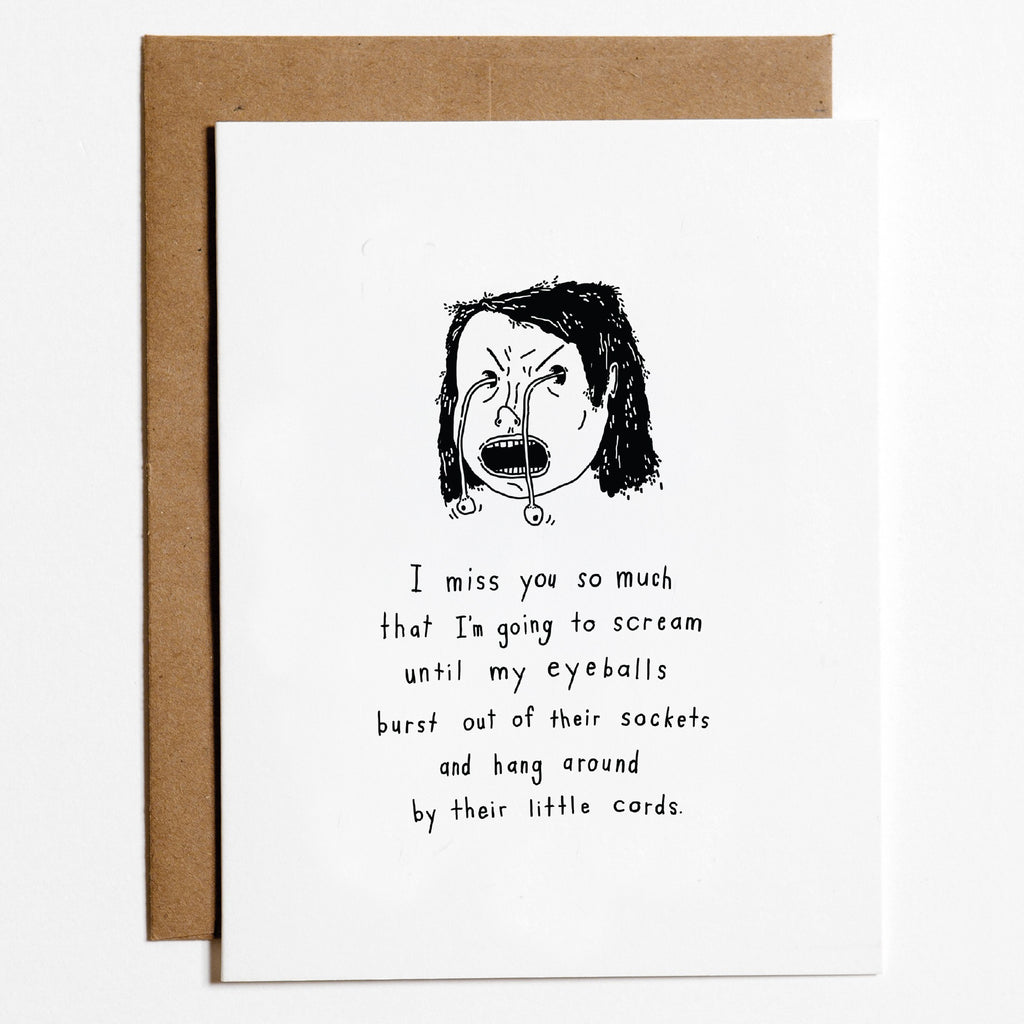 I miss you so much
that I'm going to scream
until my eyeballs
burst out of their sockets
and hang around
by their little cords.